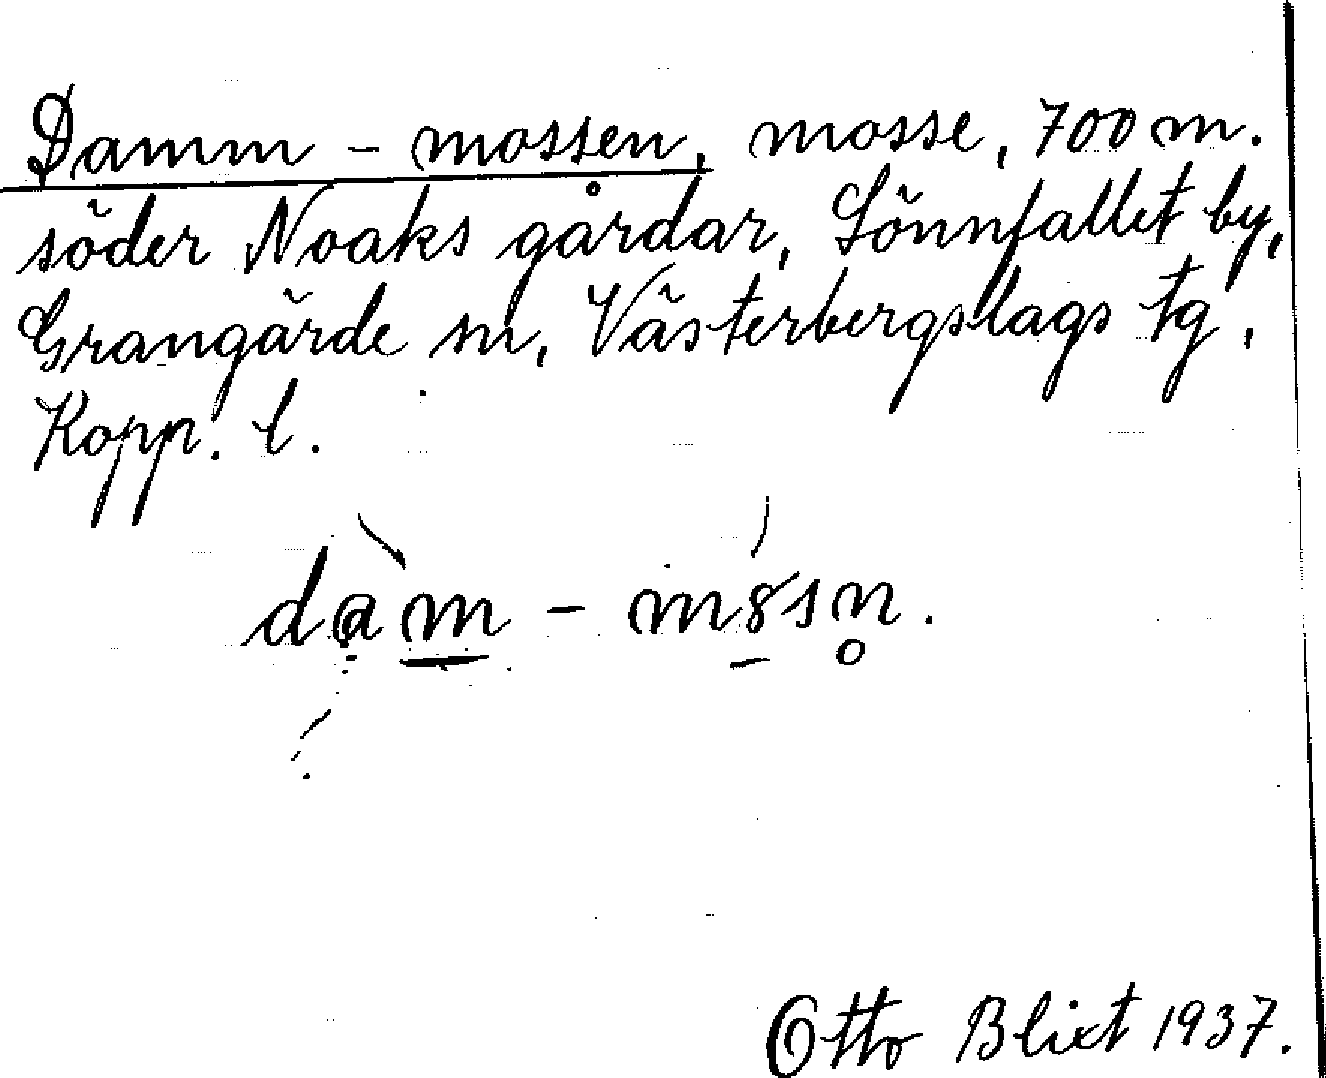 Damm - mossen, mosse, 700 m.
söder Noaks gårdar, Lönnfallet by,
Grangärde sn, Västerbergslags tg,
Kopp. l.
dam - m8sn.
Otto Blixt 1937.